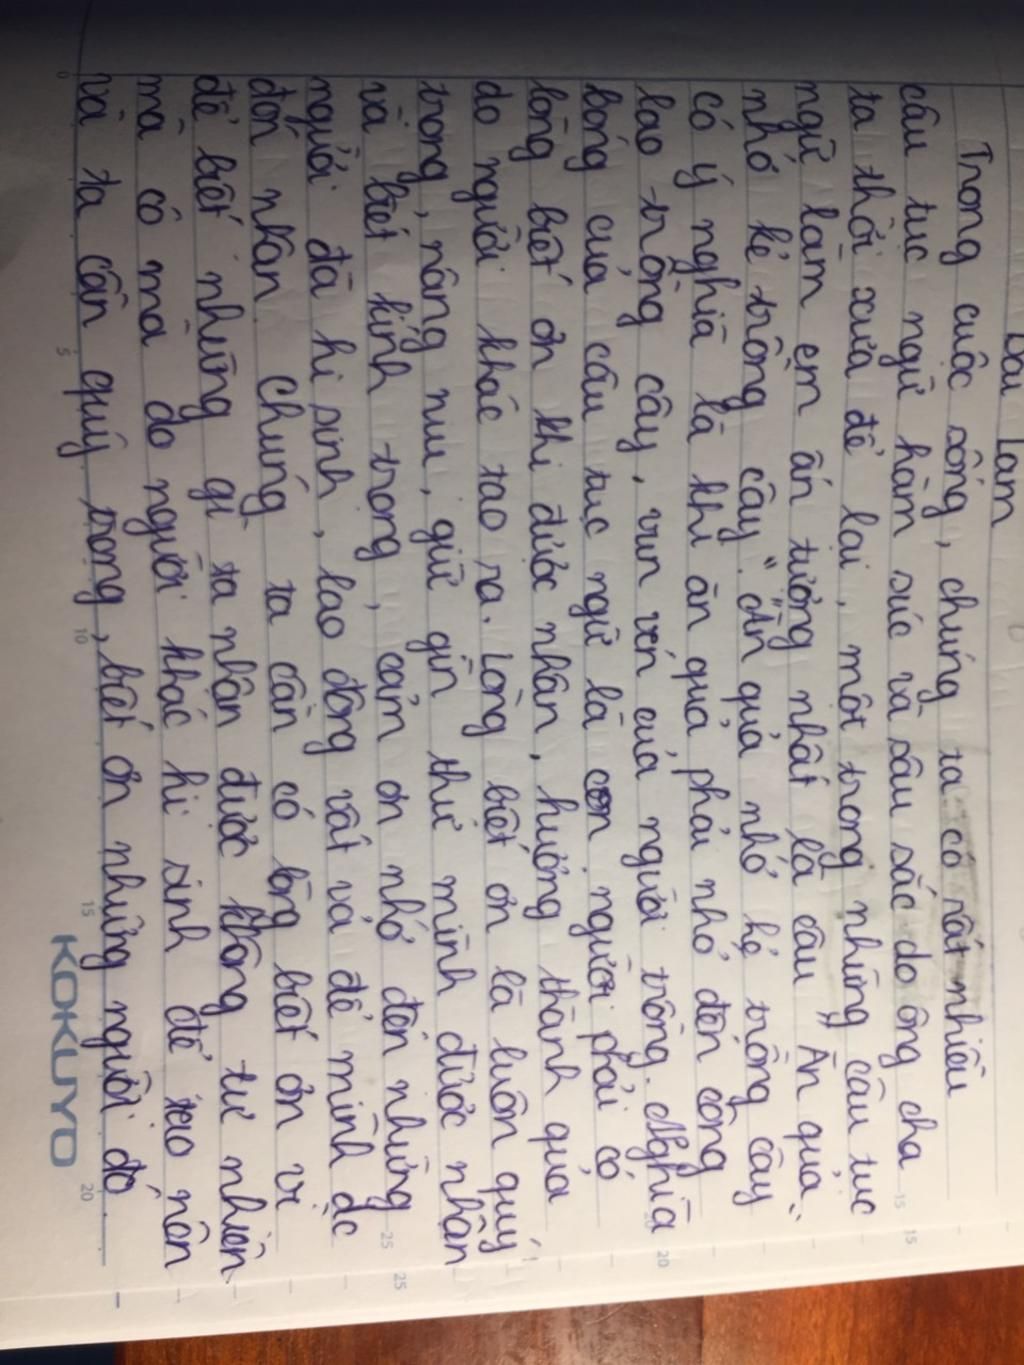 Bài Làm
Trong cuộc sống, chúng ta có rất nhiều
câu tục ngữ hàm súc và sâu sắc do ông cha
ta thời xưa để lại, một trong những câu tục
ngữ làm em ấn tượng nhất là câu " Ăn quả
nhớ kẻ trồng cây". "Ăn quả nhớ kẻ trồng cây"
có ý nghĩa là khi ăn quả phải nhớ đến công
lao trồng cây, vun vén của người trồng. Nghĩa
bóng của câu tục ngữ là con người phải có
lòng biết ơn khi được nhận, hưởng thành quả
do người khác tạo ra. Lòng biết ơn là luôn quý
trọng, nâng niu, giữ gìn thứ mình được nhận
và biết kính trọng, cảm ơn nhớ đến những
người đã hi sinh, lao động vất vả để mình đc
đón nhận. Chúng ta cần có lòng biết ơn vì
để biết những gì ta nhận được không tự nhiên
mà có mà do người khác hi sinh để tạo nên
và ta cần quý trọng, biết ơn những người đó
KOKUYO
0
5
10
15
20
15
15
20
20
25
25